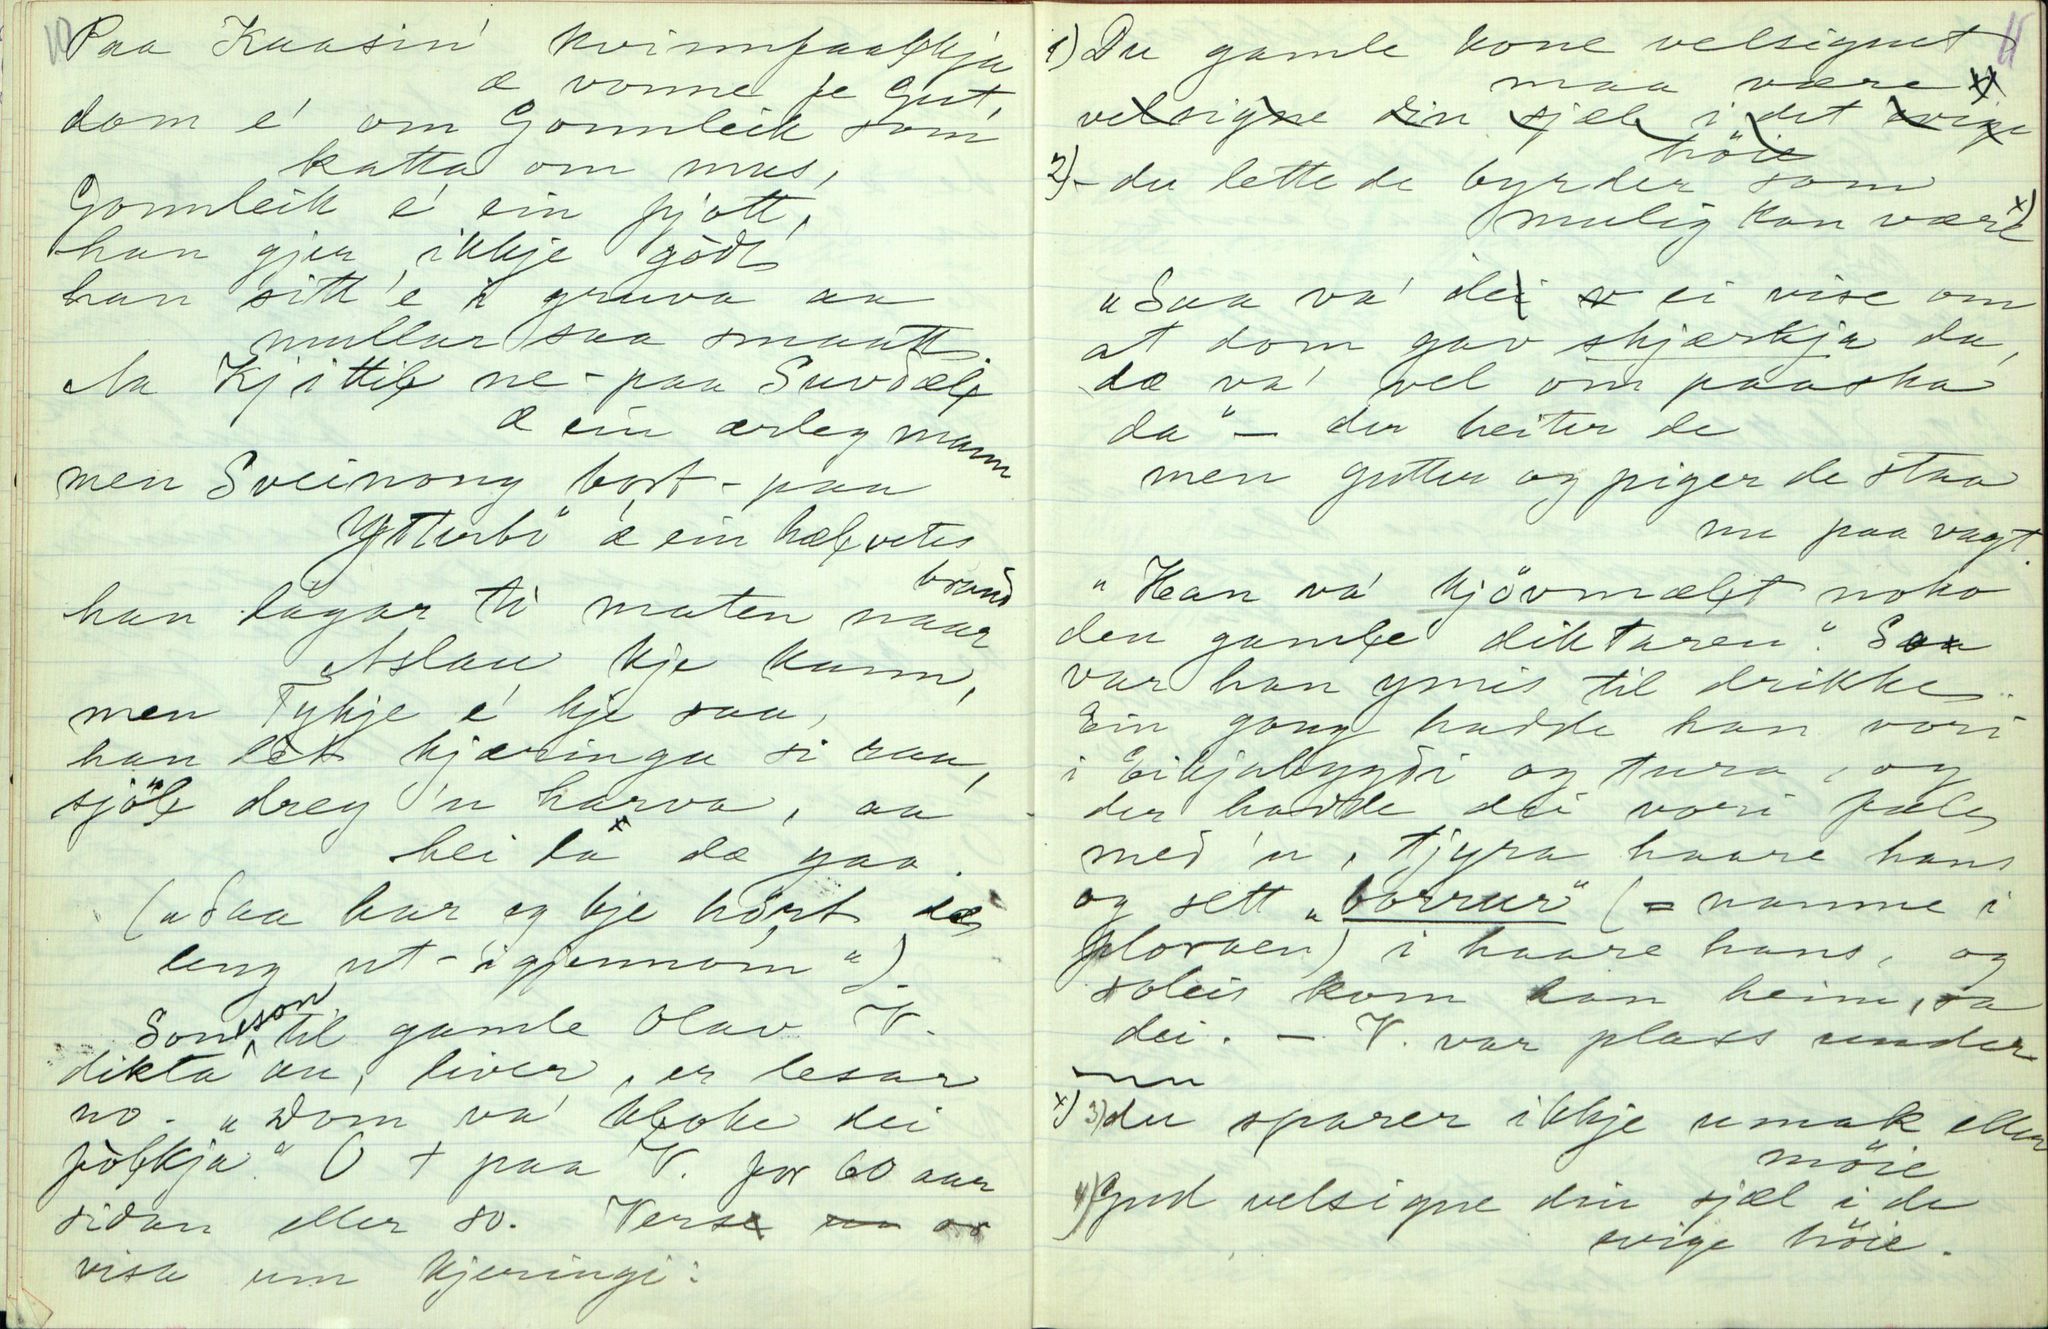 10
Paa Kaasin' kvinnfaalkja
æ vonne fe Gut,
dom e' om Gonnleik som
katta om mus,
Gonnleik é ein fjott,
han gjer ikkje godt
han sitt'e i gruva aa
mullar saa smaatt.
Aa Kjittil ne-paa Suvdæl
æ ein ærleg mann
men Sveinong bort-paa
Ytterbö æ ein hælvetes
brand
han lagar te maten naar
Aslau kje kann,
men Tykje é kje saa,
han let kjæringa si raa,
sjöl dreg 'n harva, aa
hei la x dæ gaa.
("Saa har eg kje hört dæ
leng ut-igjennom").
Soneson til gamle Olav V.
dikta au, liver, er lesar
no. "Dom va' kloke dei
folkja." O + paa V. for 60 aar
sidan eller so. Vers or
visa um kjeringi:
11
1) Du gamle kone velsignet
maa være x)
velsigne din sjæl i det evige
höie
2) - du lette de byrder som
mulig kan være x)
"Saa va' de ei vise om
at dom gav skjærkja da,
dæ va' vel om paaska
da" - der heiter de
men gutter og piger de staa
nu paa vagt.
"Han va' kjövmælt noko
den gamle diktaren". Saa
var han ymis til drikke.
Ein gong hadde han vori
i Eikjabygdi og tura, og
der hadde dei vori fæle
med 'n, tjyra haare hans
og sett "borrur" (= namme i
floraen) i haare hans, og
soleis kom han heim, sa
dei. - V. var plass under
x) 3) du sparer ikkje umak eller
möie
4) Gud velsigne din sjæl i de
evige höie.